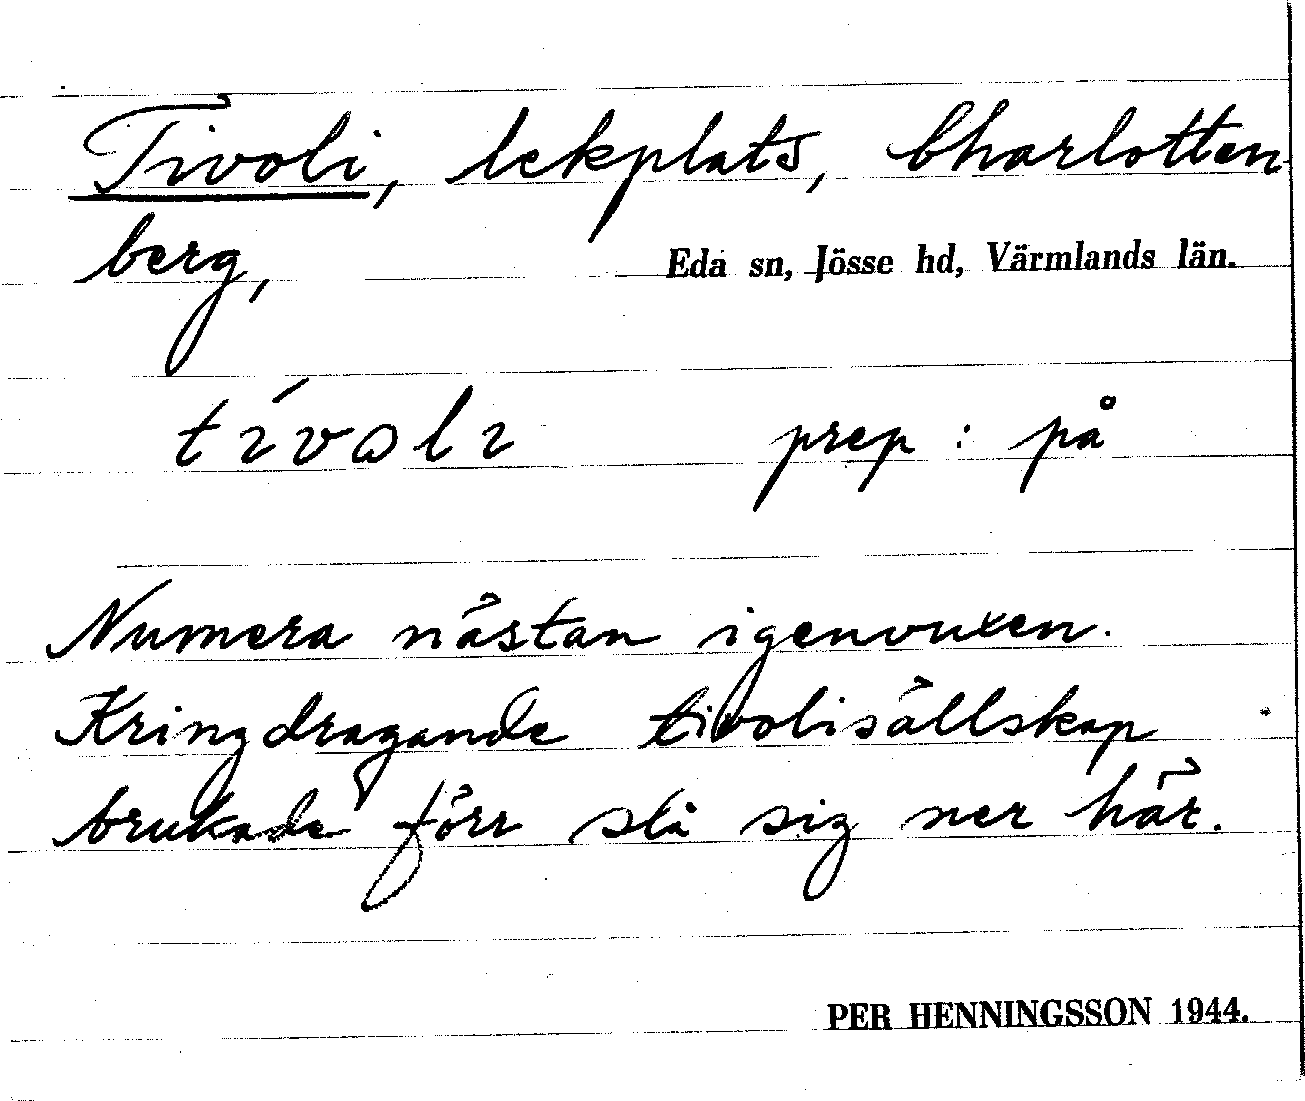 Tivoli, lekplats, Charlotten
berg, Eda sn, Jösse hd, Värmlands län.
tívoli prep: på
Numera nästan igenvuxen.
Kringdragande tivolisällskap
brukade förr slå sig ner här.
PER HENNINGSSON 1944.